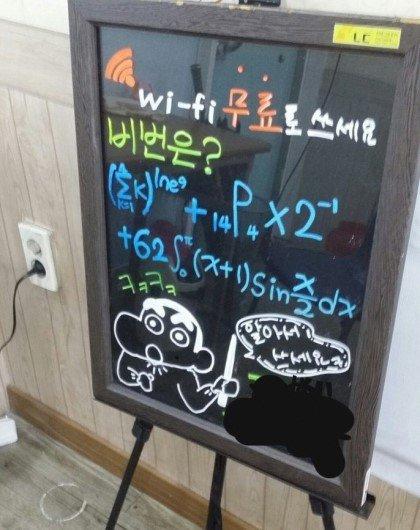 LC
wi-fi 무료로 쓰세요
비번은?
(∑k)^{lne⁹} + ₁₄P₄ × 2⁻¹
+62∫₀^π (x+1)Sin x/2 dx
ㅋㅋㅋㅋ
알아서
쓰세요